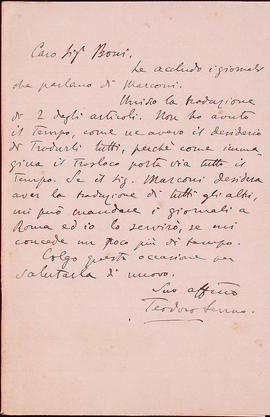 Caro Sigr Boni.
Le accludo i giornali
che parlano di Marconi.
Unisco la traduzione
di 2 degli articoli. Non ho avuto
il tempo, come ne avevo il desiderio
di Tradurli tutti, perchè come imma-
gina il Trasloco porta via tutto il
Tempo. Se il Sig. Marconi desidera
aver la traduzione di tutti gli altri,
mi può mandare i giornali a
Roma ed io lo servirò, se mi
concede un poco più di tempo.
Colgo questa occasione per
salutarla di nuovo.
Suo affmo
Teodoro